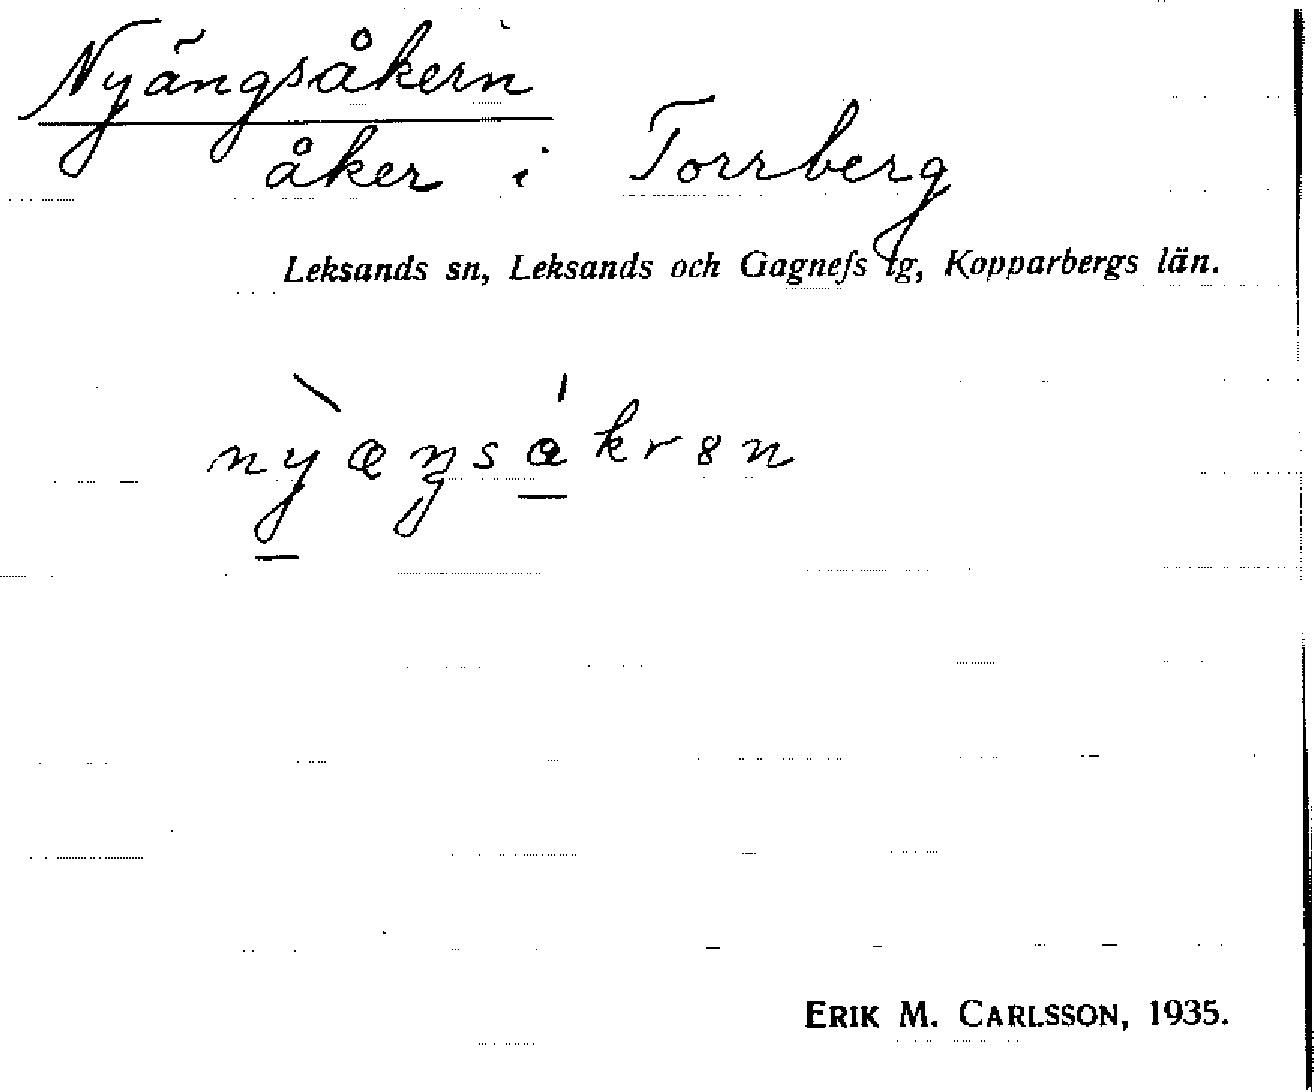 Nyängsåkern
åker i Torrberg
Leksands sn, Leksands och Gagnefs tg, Kopparbergs län.
ERIK M. CARLSSON, 1935.